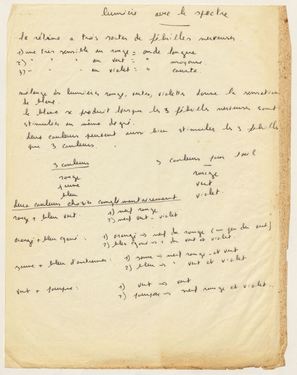 lumière avec le spectre
la rétine a trois sortes de fibrilles nerveuses
1) une très sensible au rouge = onde longue
2) " " au vert = " moyenne
3) " " au violet = " courte
mélange des lumières rouges, vertes, violettes donne la sensation
de blanc.
le blanc se produit lorsque les 3 fibrilles nerveuses sont
stimulées au même degré.
deux couleurs peuvent aussi bien stimuler les 3 fibrilles
que 3 couleurs.
3 couleurs
rouge
jaune
bleu
3 couleurs pour l'œil
rouge
vert
violet
deux couleurs choisies complémentairement
rouge + bleu vert : 1) nerf rouge
2) nerf vert violet
orangé + bleu cyané : 1) orangé → nerf du rouge (un peu du vert)
2) bleu cyané → du vert et violet
jaune + bleu d'outremer : 1) jaune → nerf rouge et vert
2) bleu → " vert et violet
vert + pourpre : 1) vert → vert
2) pourpre → nerf rouge et violet